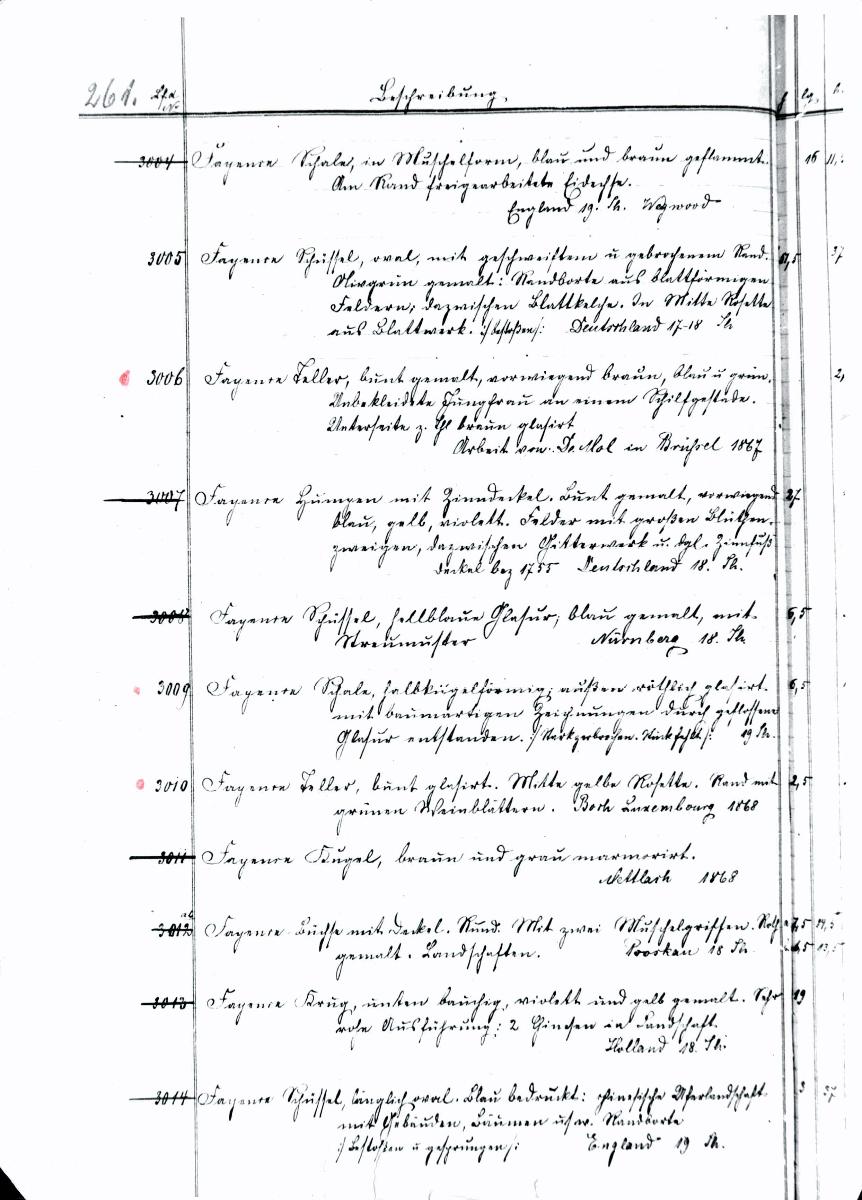 261. Lfd. No. Beschreibung. lg. h.
3004 Fayence Schale, in Muschelform, blau und braun geflammt. 16 11,
Am Rand freigearbeitete Eidechse.
England 19. Jh. Wegwood
3005 Fayence Schüssel, oval, mit geschweiftem u gebrochenem Rand. 37
Olivgrün gemalt: Randborte aus blattförmigen
Feldern, dazwischen Blattkelche. In Mitte Rosette
aus Blattwerk. :/bestoßen/: Deutschland 17-18 Jh
3006 Fayence Teller, bunt gemalt, vorwiegend braun, blau u grün. 2,
Unbekleidete Jungfrau an einem Schilfgestade.
Unterseite z. Thl braun glasirt
Arbeit von De Mol in Brüssel 1867
3007 Fayence Humpen mit Zinndeckel. Bunt gemalt, vorwiegend 27
blau, gelb, violett. Felder mit großen Blüthen-
zweigen, dazwischen Gitterwerk u. dgl. Zinnfuß
Deckel bez 1755 Deutschland 18. Jh.
3008 Fayence Schüssel, hellblaue Glasur, blau gemalt, mit 6,5
Streumuster Nürnberg 18. Jh.
3009 Fayence Schale, halbkugelförmig; außen röthlich glasirt. 6,5
mit baumartigen Zeichnungen durch geflossene
Glasur entstanden. :/Stark zerbrochen. Stück fehlt/: 19 Jh.
3010 Fayence Teller, bunt glasirt. Mitte gelbe Rosette. Rand mit 2,5
grünen Weinblättern. Boch Luxembourg 1868
3011 Fayence Kugel, braun und grau marmorirt.
Mettlach 1868
3012 ab Fayence Büchse mit Deckel. Rund. Mit zwei Muschelgriffen. Roth a 7,5 14,5
gemalt. Landschaften. Proskau 18 Jh. 13,5
3013 Fayence Krug, unten bauchig, violett und gelb gemalt. Sehr 19
rohe Ausführung: 2 Chinesen in Landschaft.
Holland 18. Jh.
3014 Fayence Schüssel, länglich oval. Blau bedruckt: chinesische Uferlandschaft 3 37
mit Gebäuden, Bäumen usw. Randborte
:/Bestoßen u gesprungen/: England 19 Jh.